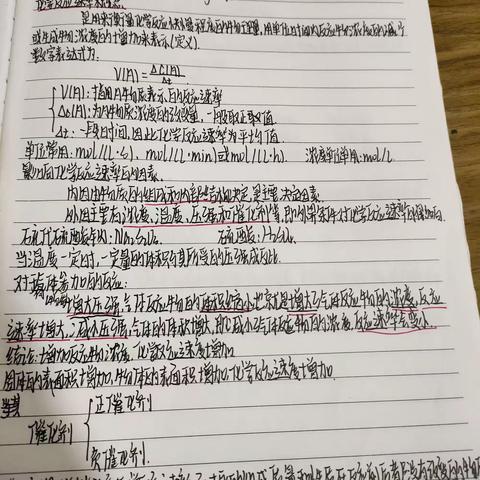 化学反应速率的概念.
是用来衡量化学反应快慢程度的物理量,用单位时间内反应物浓度的减少
或生成物浓度的增加来表示(定义).
数学表达式为:
V(A)=△C(A)/△t
V(A):指用A物质表示的反应速率
△C(A):为A物质浓度的改变量,一般取正取值
△t:一段时间,因此化学反应速率为平均值.
单位常用:mol/(L·s)、mol/(L·min)或mol/(L·h). 浓度单位用:mol/L
影响化学反应速率的因素.
内因由物质的组成和内部结构决定,是主要决定因素.
外因主要有浓度、温度、压强和催化剂等,即外界条件对化学反应速率的影响
硫代硫酸钠: 硫酸:
当温度一定时,一定量的体积与其所受的压强成反比.
对气体参加的反应:
增大压强,气体反应物的体积缩小,也就是增大了气体反应物的浓度,反应
速率增大;减小压强,气体的体积增大,即减小气体反应物的浓度,反应速率会变小.
结论:增加反应物浓度,化学反应速度增加
固体的表面积增加,物体的表面积增加,化学反应速度增加.
催化剂
正催化剂
负催化剂.